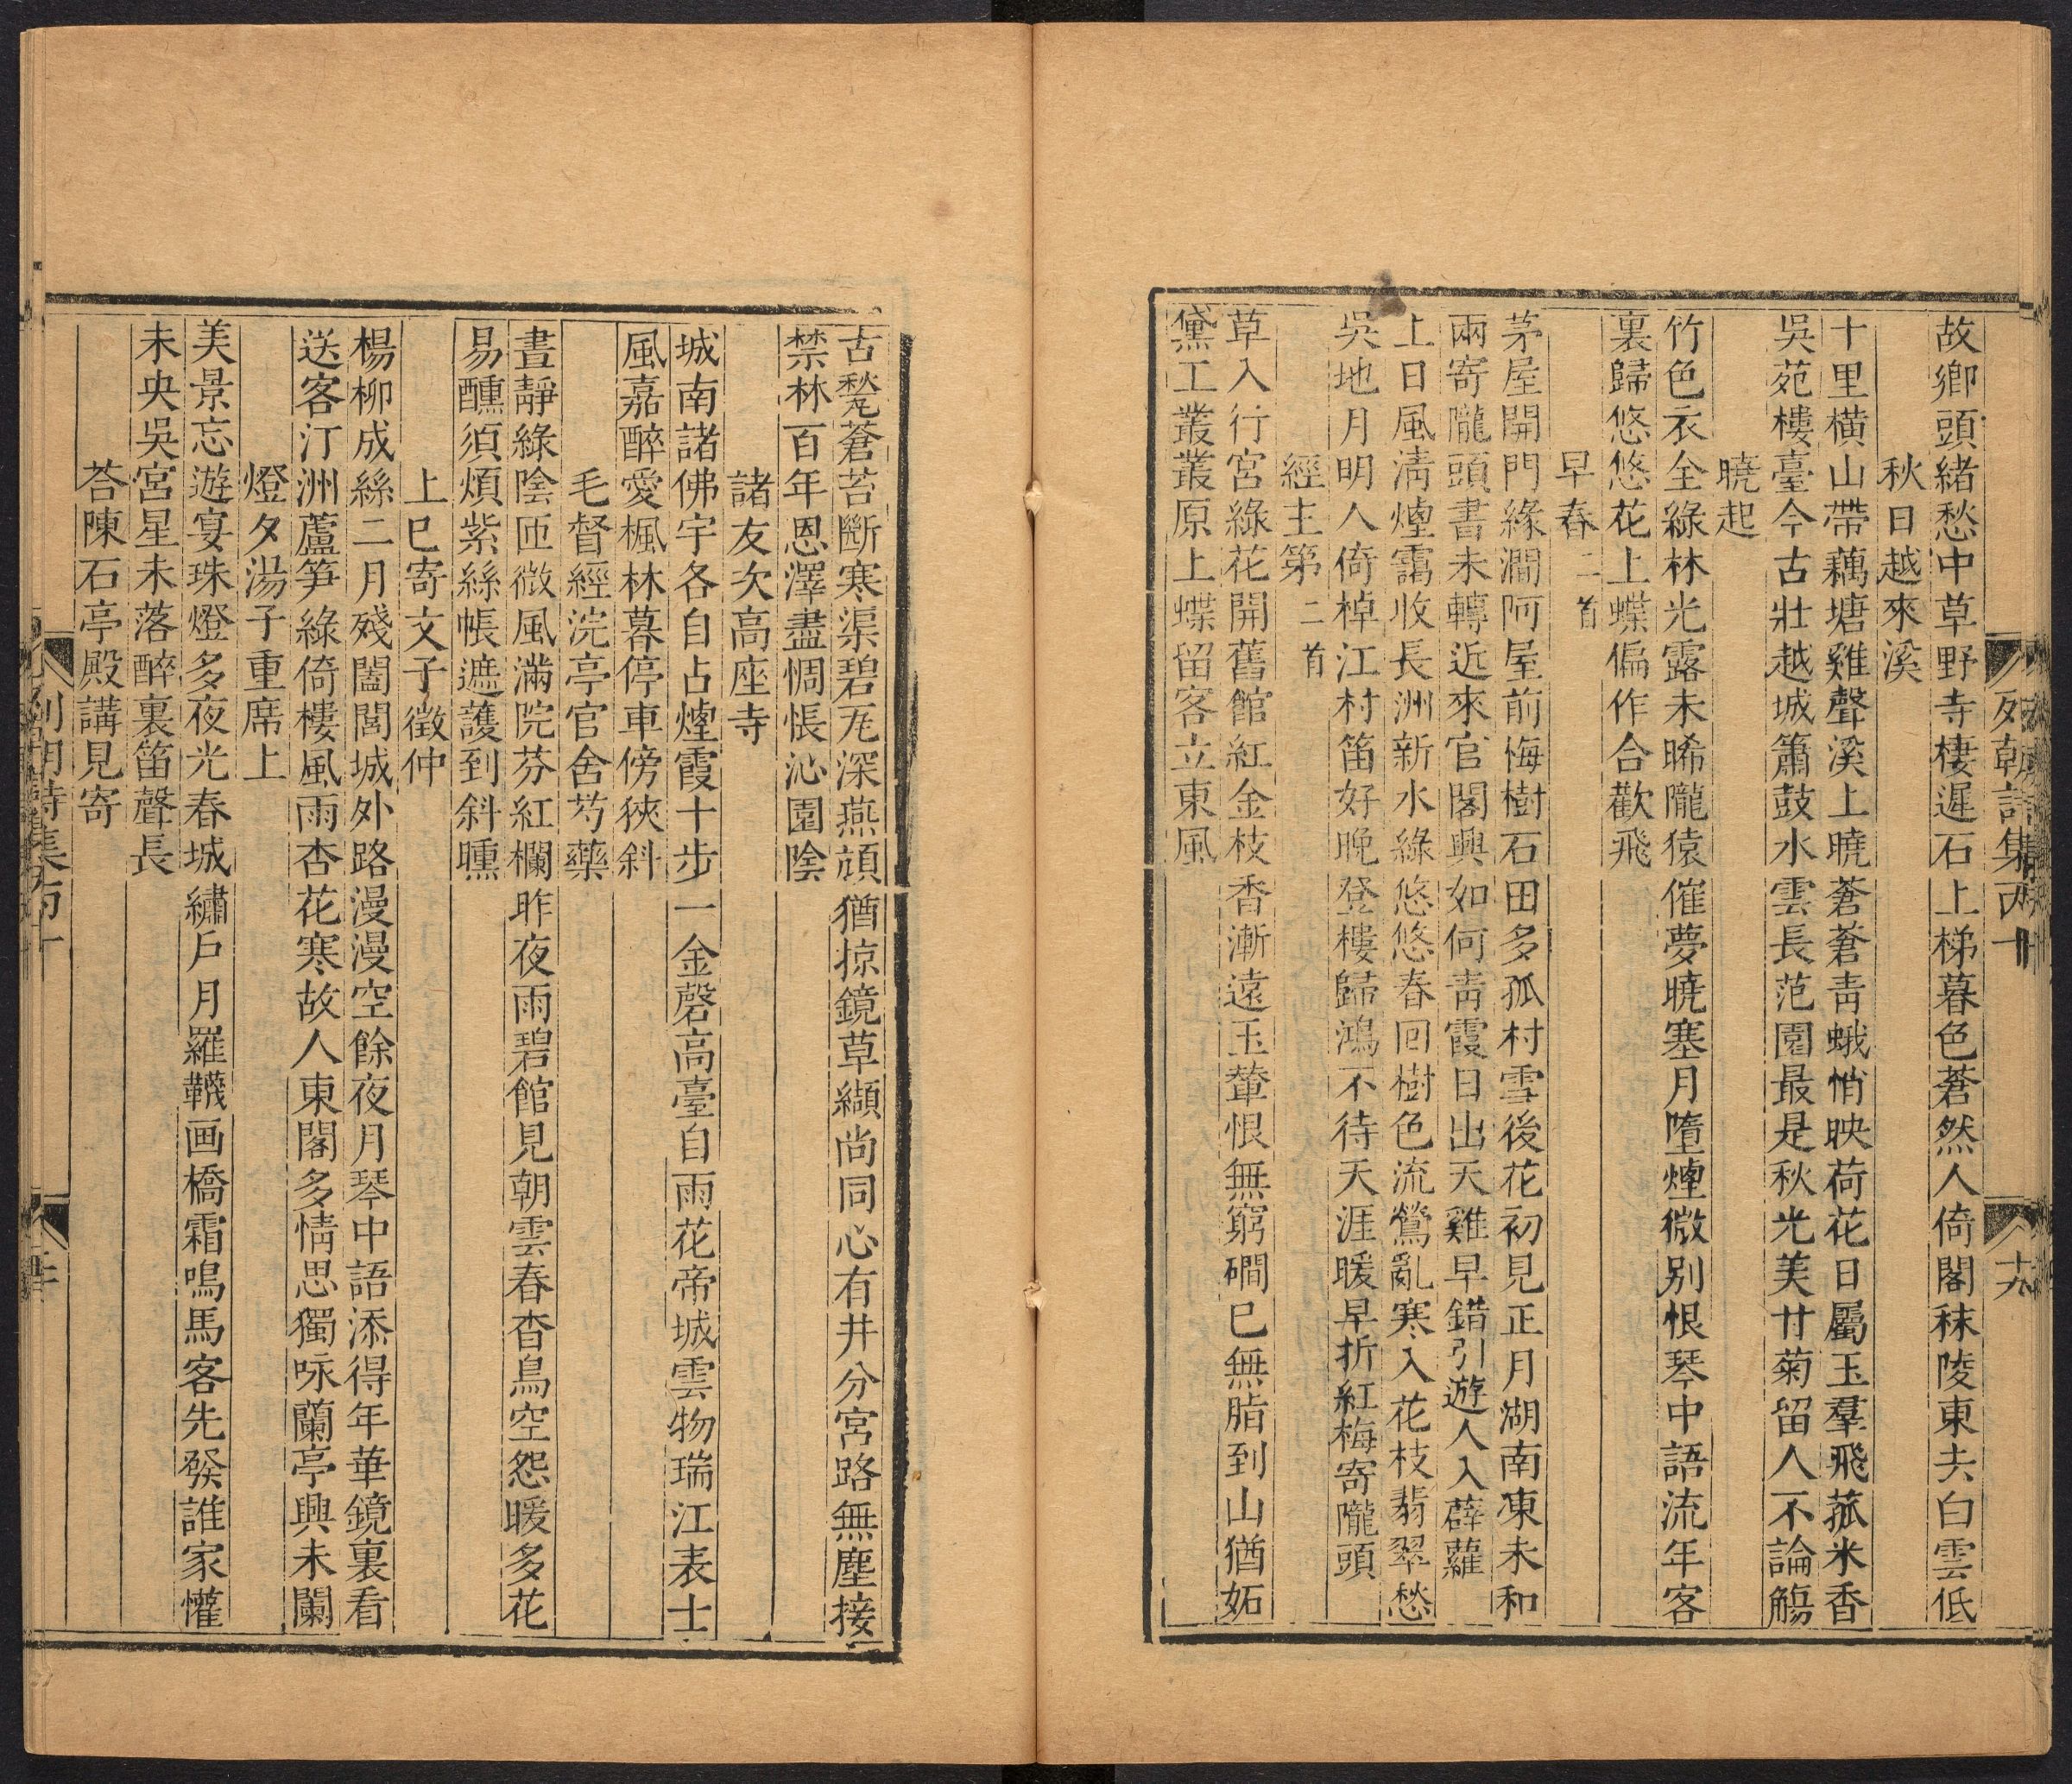 列朝詩集丙十
十九
故鄉頭緒愁中草野寺棲遲石上梯暮色蒼然人倚閣秣陵東去白雲低
秋日越來溪
十里橫山帶藕塘雞聲溪上曉蒼蒼青蛾悄映荷花日屬玉羣飛菰米香
吳苑樓臺今古壯越城簫鼓水雲長范園最是秋光美廿菊留人不論觴
曉起
竹色衣全綠林光露未晞隴猿催夢曉塞月墮煙微别恨琴中語流年客
裏歸悠悠花上蝶偏作合歡飛
早春二首
茅屋開門緣澗阿屋前悔樹石田多孤村雪後花初見正月湖南凍未和
兩寄隴頭書未轉近來官閣興如何青霞日出天雞早錯引遊人入薜蘿
上日風淸煙靄收長洲新水綠悠悠春回樹色流鶯亂寒入花枝翡翠愁
吳地月明人倚棹江村笛好晚登樓歸鴻不待天涯暖早折紅梅寄隴頭
經主第二首
草入行宮綠花開舊館紅金枝香漸遠玉輦恨無窮磵巳無脂到山猶妬
黛工叢叢原上蝶留客立東風
古甃蒼苔斷寒渠碧瓦深燕頏猶掠鏡草纈尚同心有井分宮路無塵接
禁林百年恩澤盡惆悵沁園陰
諸友次高座寺
城南諸佛宇各自占煙霞十步一金磬高臺自雨花帝城雲物瑞江表士
風嘉醉愛楓林暮停車傍狹斜
毛督經浣亭官舍芍藥
晝靜綠陰匝微風滿院芬紅欄昨夜雨碧館見朝雲春杳鳥空怨暖多花
易醺須煩紫絲帳遮護到斜曛
上巳寄文子徵仲
楊柳成絲二月殘闔閭城外路漫漫空餘夜月琴中語添得年華鏡裏看
送客汀洲蘆笋綠倚樓風雨杏花寒故人東閣多情思獨咏蘭亭興未闌
燈夕湯子重席上
美景忘遊宴珠燈多夜光春城繡戶月羅韈画橋霜鳴馬客先發誰家懽
未央吳宮星未落醉裏笛聲長
荅陳石亭殿講見寄
列朝詩集丙十
二十